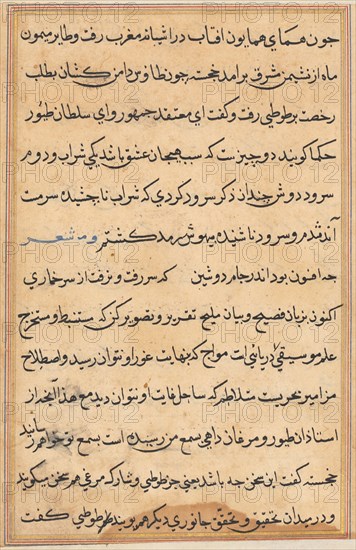 چون همای همایون افتاب در اشیانه مغرب رفت و طایر میمون
ماه از نشیمن مشرق برامد خجسته چون نطاوس دامن کشان بطلب
رخصت بر طوطی رفت و گفت ای معتقد جمهور و ای سلطان طیور
حکما کویند دو چیزست که سبب هیجان عشق باشد یکی شراب و دوم
سرود دوش چندان ذکر سرود کردی که شراب ناچشیده سرمست
آن شدم و سرود ناشنیده بیهوش سرمد کشتم و مشعر
چه افسون بود اندر جام دوشین که سر رفت و نرفت از سر خماری
اکنون بزبان فصیح و بیان ملیح تقریر و تصویر کن که مستنبط و مستخرج
علم موسیقی دریائی است مواج که بنهایت غور او نتوان رسید و اصطلاح
مزامیر بحریست متلاطم که ساحل غایت او نتوان دید مع هذا آنچه از
استاذان طیور و مرغان داهی بسمع من رسیده است بسمع تو خواهم رسانید
خجسته گفت این سخن چه باشد یعنی جز طوطی و شارک مرغی هم سخن میگوید
و در میدان تحقیق و تحقق جانوری دیکر هم پوید طوطی گفت